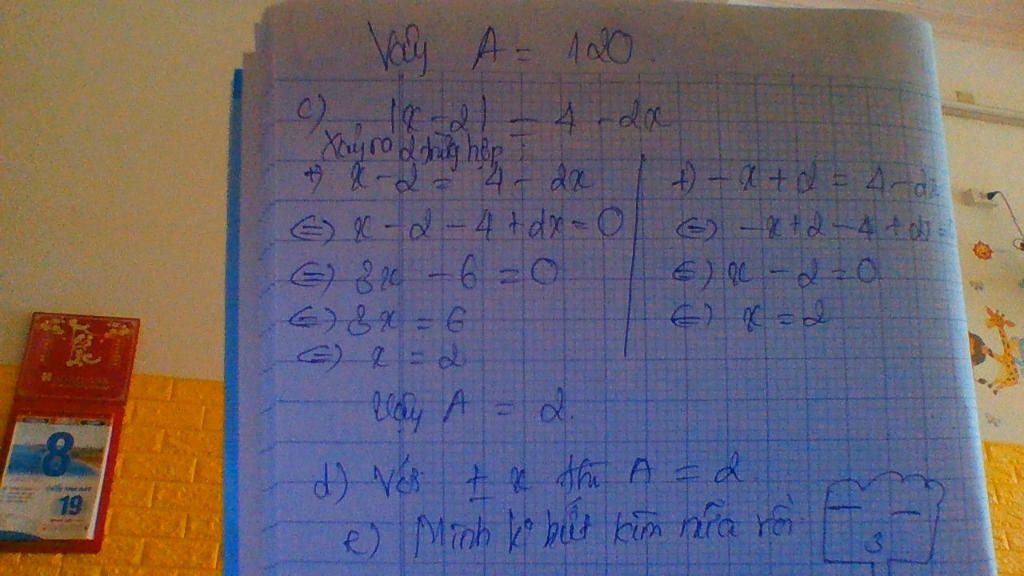 Vậy A = 120.
c) |x - 2| = 4 - 2x
Xảy ra 2 trường hợp :
+) x - 2 = 4 - 2x
(=) x - 2 - 4 + 2x = 0
(=) 3x - 6 = 0
(=) 3x = 6
(=) x = 2
+) - x + 2 = 4 - 2x
(=) - x + 2 - 4 + 2x =
(=) x - 2 = 0
(=) x = 2
Vậy A = 2.
d) Với ± x thì A = 2
e) Mình k biết làm nữa rồi
3
8
19